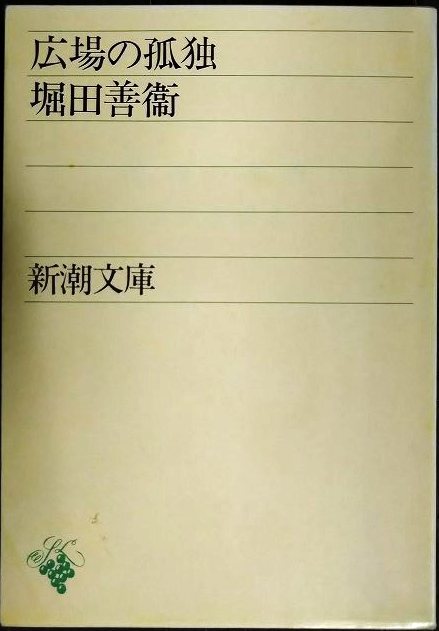 広場の孤独
堀田善衞
新潮文庫